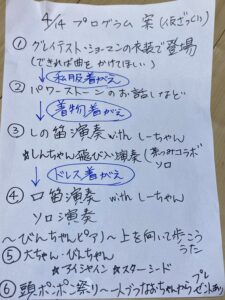 4/14 プログラム 案 (仮ざっくり)
① グレイテスト・ショーマンの衣装で登場
(できれば曲をかけてほしい)
私服着がえ
② パワーストーンのお話しなど
着物着がえ
③ しの笛演奏 with しーちゃん
★しんちゃん飛び入り演奏 (
ソロ
ドレス着がえ
④ 口笛演奏 with しーちゃん
ソロ演奏
〜びんちゃんピアノ〜上を向いて歩こう
うた
⑤ 大ちゃん・びんちゃん
★アイシャイン ★スターシード
⑥ 頭ポンポン祭り〜